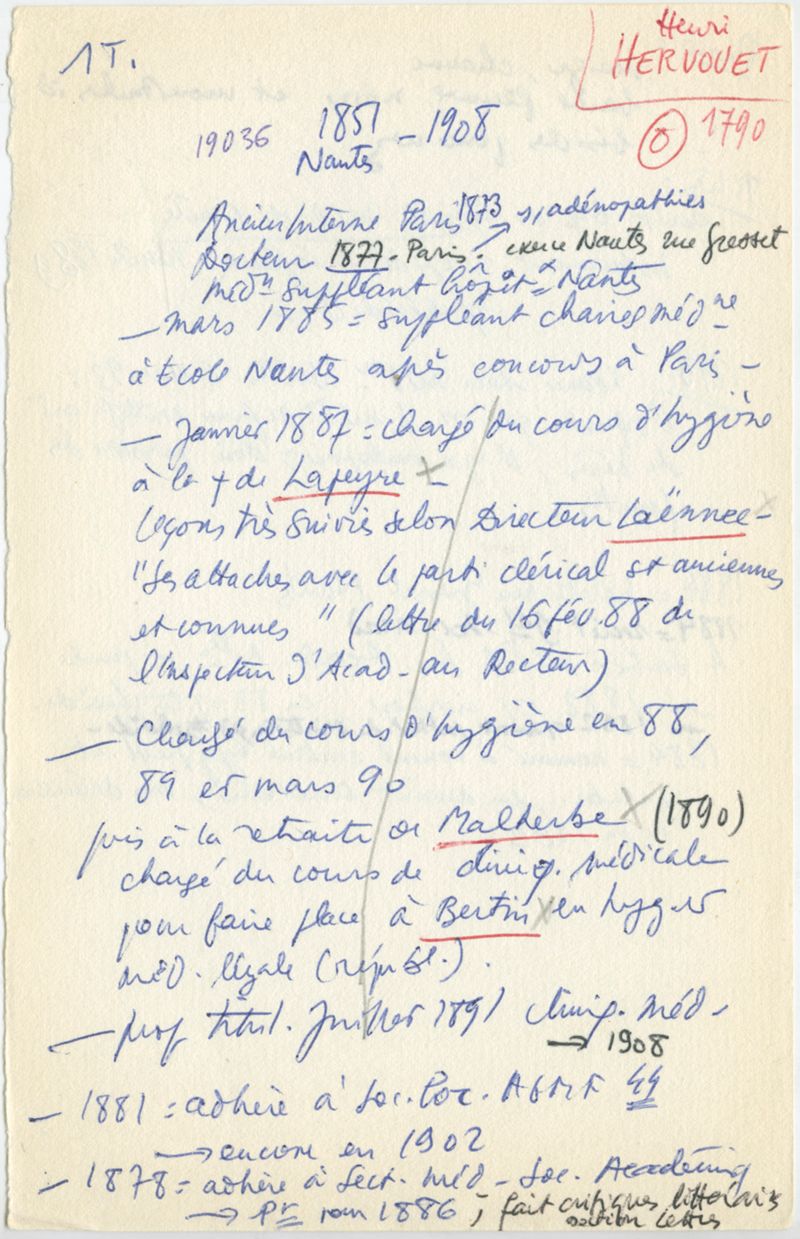 1T.
Henri
HERVOUET
1790
19036 1851 - 1908
Nantes
Ancien Interne Paris 1873 → s/ adénopathies
Docteur 1877 - Paris. exerce Nantes rue Gresset
Médn suppléant hôpitx Nantes
— mars 1885 = suppléant chaires médne
à Ecole Nantes après concours à Paris -
— Janvier 1887 = chargé du cours d'hygiène
à la + de Lapeyre x -
leçons très suivies selon Directeur Laënnec - x
"Ses attaches avec le parti clérical st anciennes
et connues " (lettre du 16 fév. 88 de
l'Inspecteur d'Acad - au Recteur)
— chargé du cours d'hygiène en 88,
89 et mars 90
puis à la retraite de Malherbe x (1890)
chargé du cours de cliniq. médicale
pour faire place à Bertin x en hyg. et
méd. légale (républ.).
— prof titul. Juillet 1891 cliniq. méd -
→ 1908
— 1881 = adhère à Soc. Loc. AGMF 44
→ encore en 1902
— 1878 = adhère à Sect. méd - Soc. Académiq
→ Pr pour 1886 ; fait critiques littéraires
section lettres